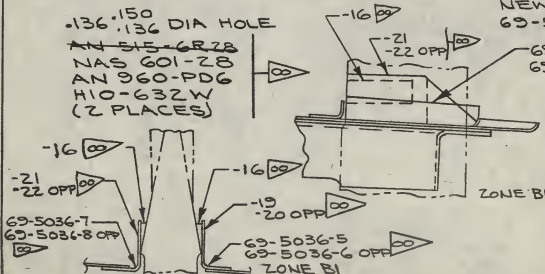 .136 .150
.136 DIA HOLE
AN 515-6R28
NAS 601-28
AN 960-PD6
H10-632W
(2 PLACES)
∞
-16 ∞
-21
-22 OPP ∞
NEW
69-5
69
69
ZONE B1
-16 ∞
-21
-22 OPP ∞
69-5036-7
69-5036-8 OPP
∞
-16 ∞
-19
-20 OPP ∞
69-5036-5
69-5036-6 OPP ∞
ZONE B1